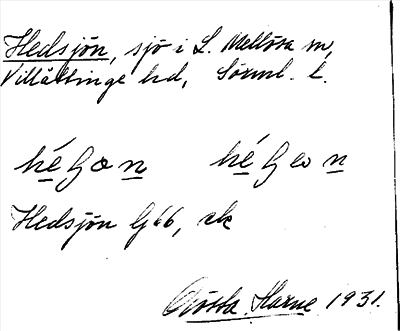 Hedsjön, sjö i L. Mellösa sn,
Villåttinge hd, Sörml. l.
Hedsjön G66, ek
Gösta Harne 1931.